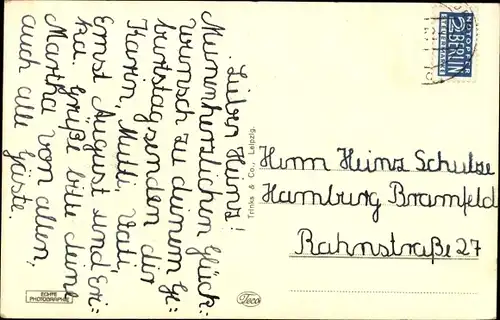 Lieber Heinz!
Meinen herzlichen Glück=
wunsch zu deinem Ge=
burtstag senden dir
Karin, Mutti, Vati,
Ernst August und Er=
ika. Grüße bitte deine
Martha von allen,
auch alle Gäste.
Herrn Heinz Schulze
Hamburg Bramfeld
Rahnstraße 27
NOTOPFER
2 BERLIN
STEUERMARKE
Trinks & Co., Leipzig.
ECHTE
PHOTOGRAPHIE
Teco